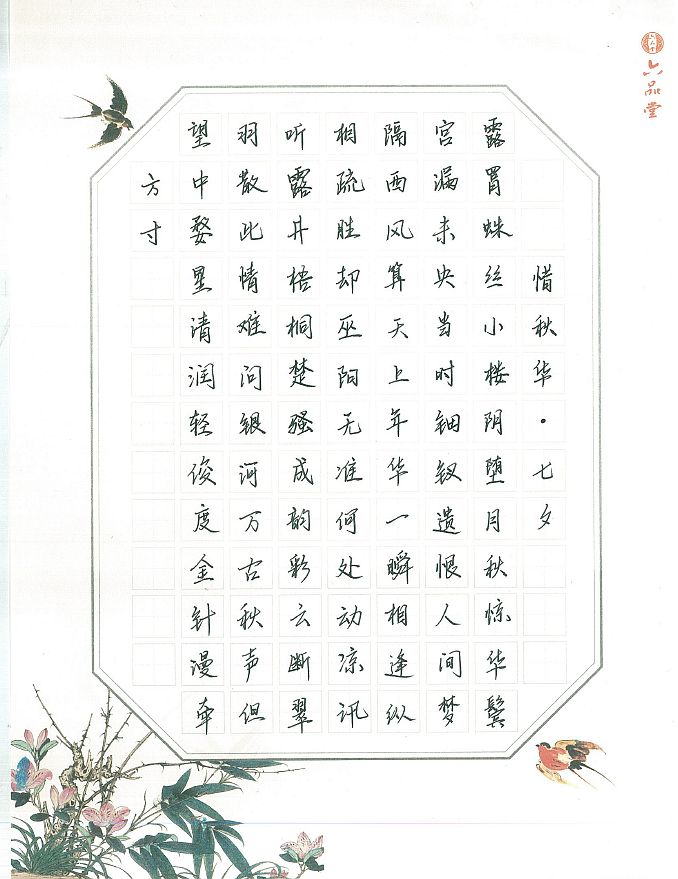 惜秋华·七夕
露罥蛛丝小楼阴堕月秋惊华鬓
宫漏未央当时钿钗遗恨人间梦
隔西风算天上年华一瞬相逢纵
相疏胜却巫阳无准何处动凉讯
听露井梧桐楚骚成韵彩云断翠
羽散此情难问银河万古秋声但
望中婺星清润轻俊度金针漫牵
方寸
六品堂